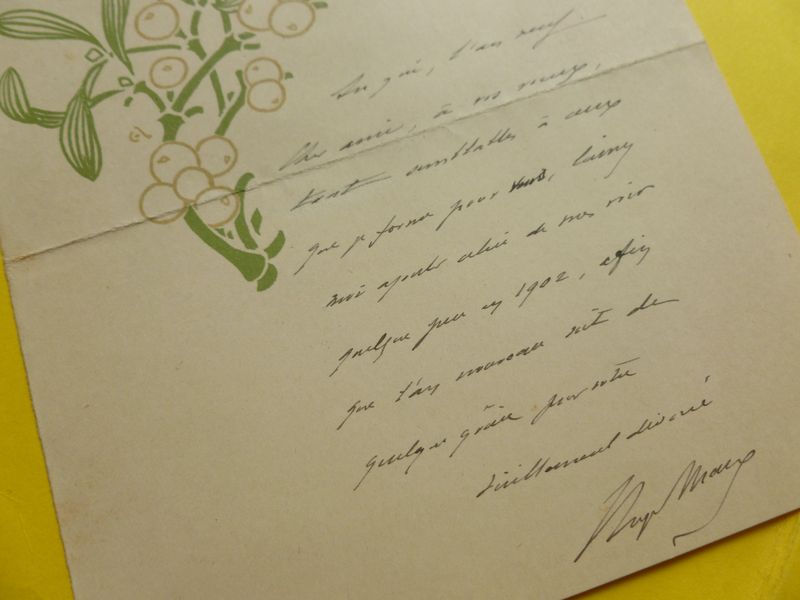 Au gui, l'an neuf.
Cher ami, à vos vœux,
tout semblables à ceux
que je forme pour vous, laissez
moi ajouter celui de nous voir
quelque peu en 1902, afin
que l'an nouveau soit de
quelque grâce pour votre
vieillement dévoué
Roger Marx